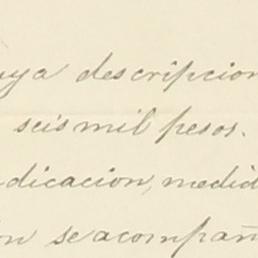 uya descripcion
seis mil pesos.
ndicacion, medid
on se acompañ